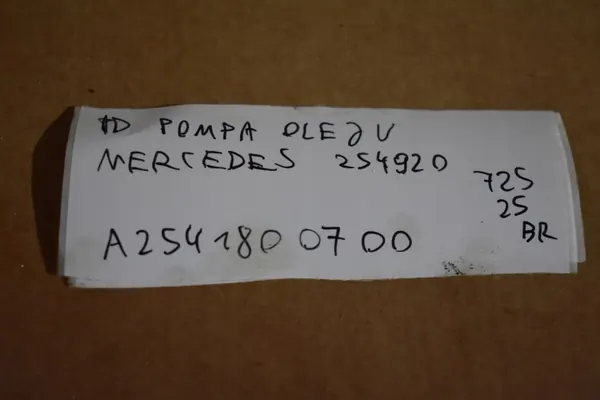 HD POMPA OLEJU
MERCEDES 254920
725
25
BR
A254 180 07 00